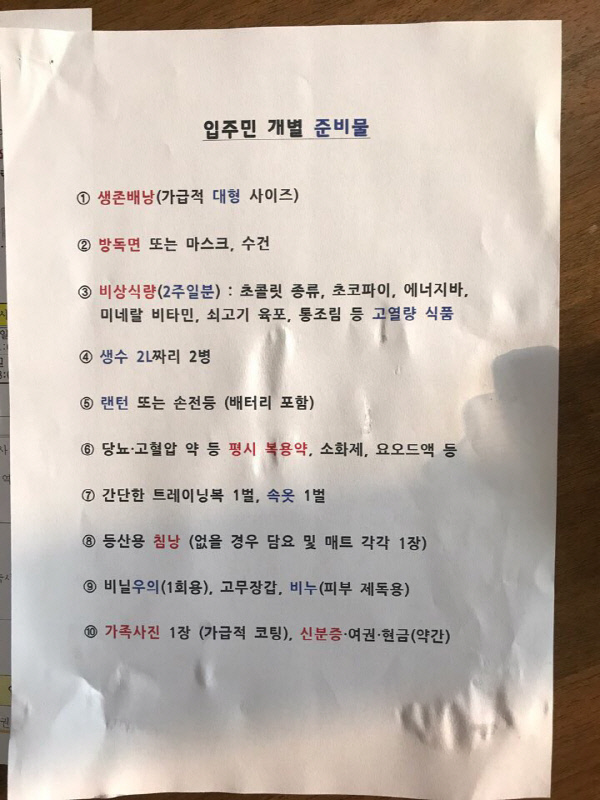 입주민 개별 준비물
① 생존배낭(가급적 대형 사이즈)
② 방독면 또는 마스크, 수건
③ 비상식량(2주일분) : 초콜릿 종류, 초코파이, 에너지바,
미네랄 비타민, 쇠고기 육포, 통조림 등 고열량 식품
④ 생수 2L짜리 2병
⑤ 랜턴 또는 손전등 (배터리 포함)
⑥ 당뇨·고혈압 약 등 평시 복용약, 소화제, 요오드액 등
⑦ 간단한 트레이닝복 1벌, 속옷 1벌
⑧ 등산용 침낭 (없을 경우 담요 및 매트 각각 1장)
⑨ 비닐우의(1회용), 고무장갑, 비누(피부 제독용)
⑩ 가족사진 1장 (가급적 코팅), 신분증·여권·현금(약간)